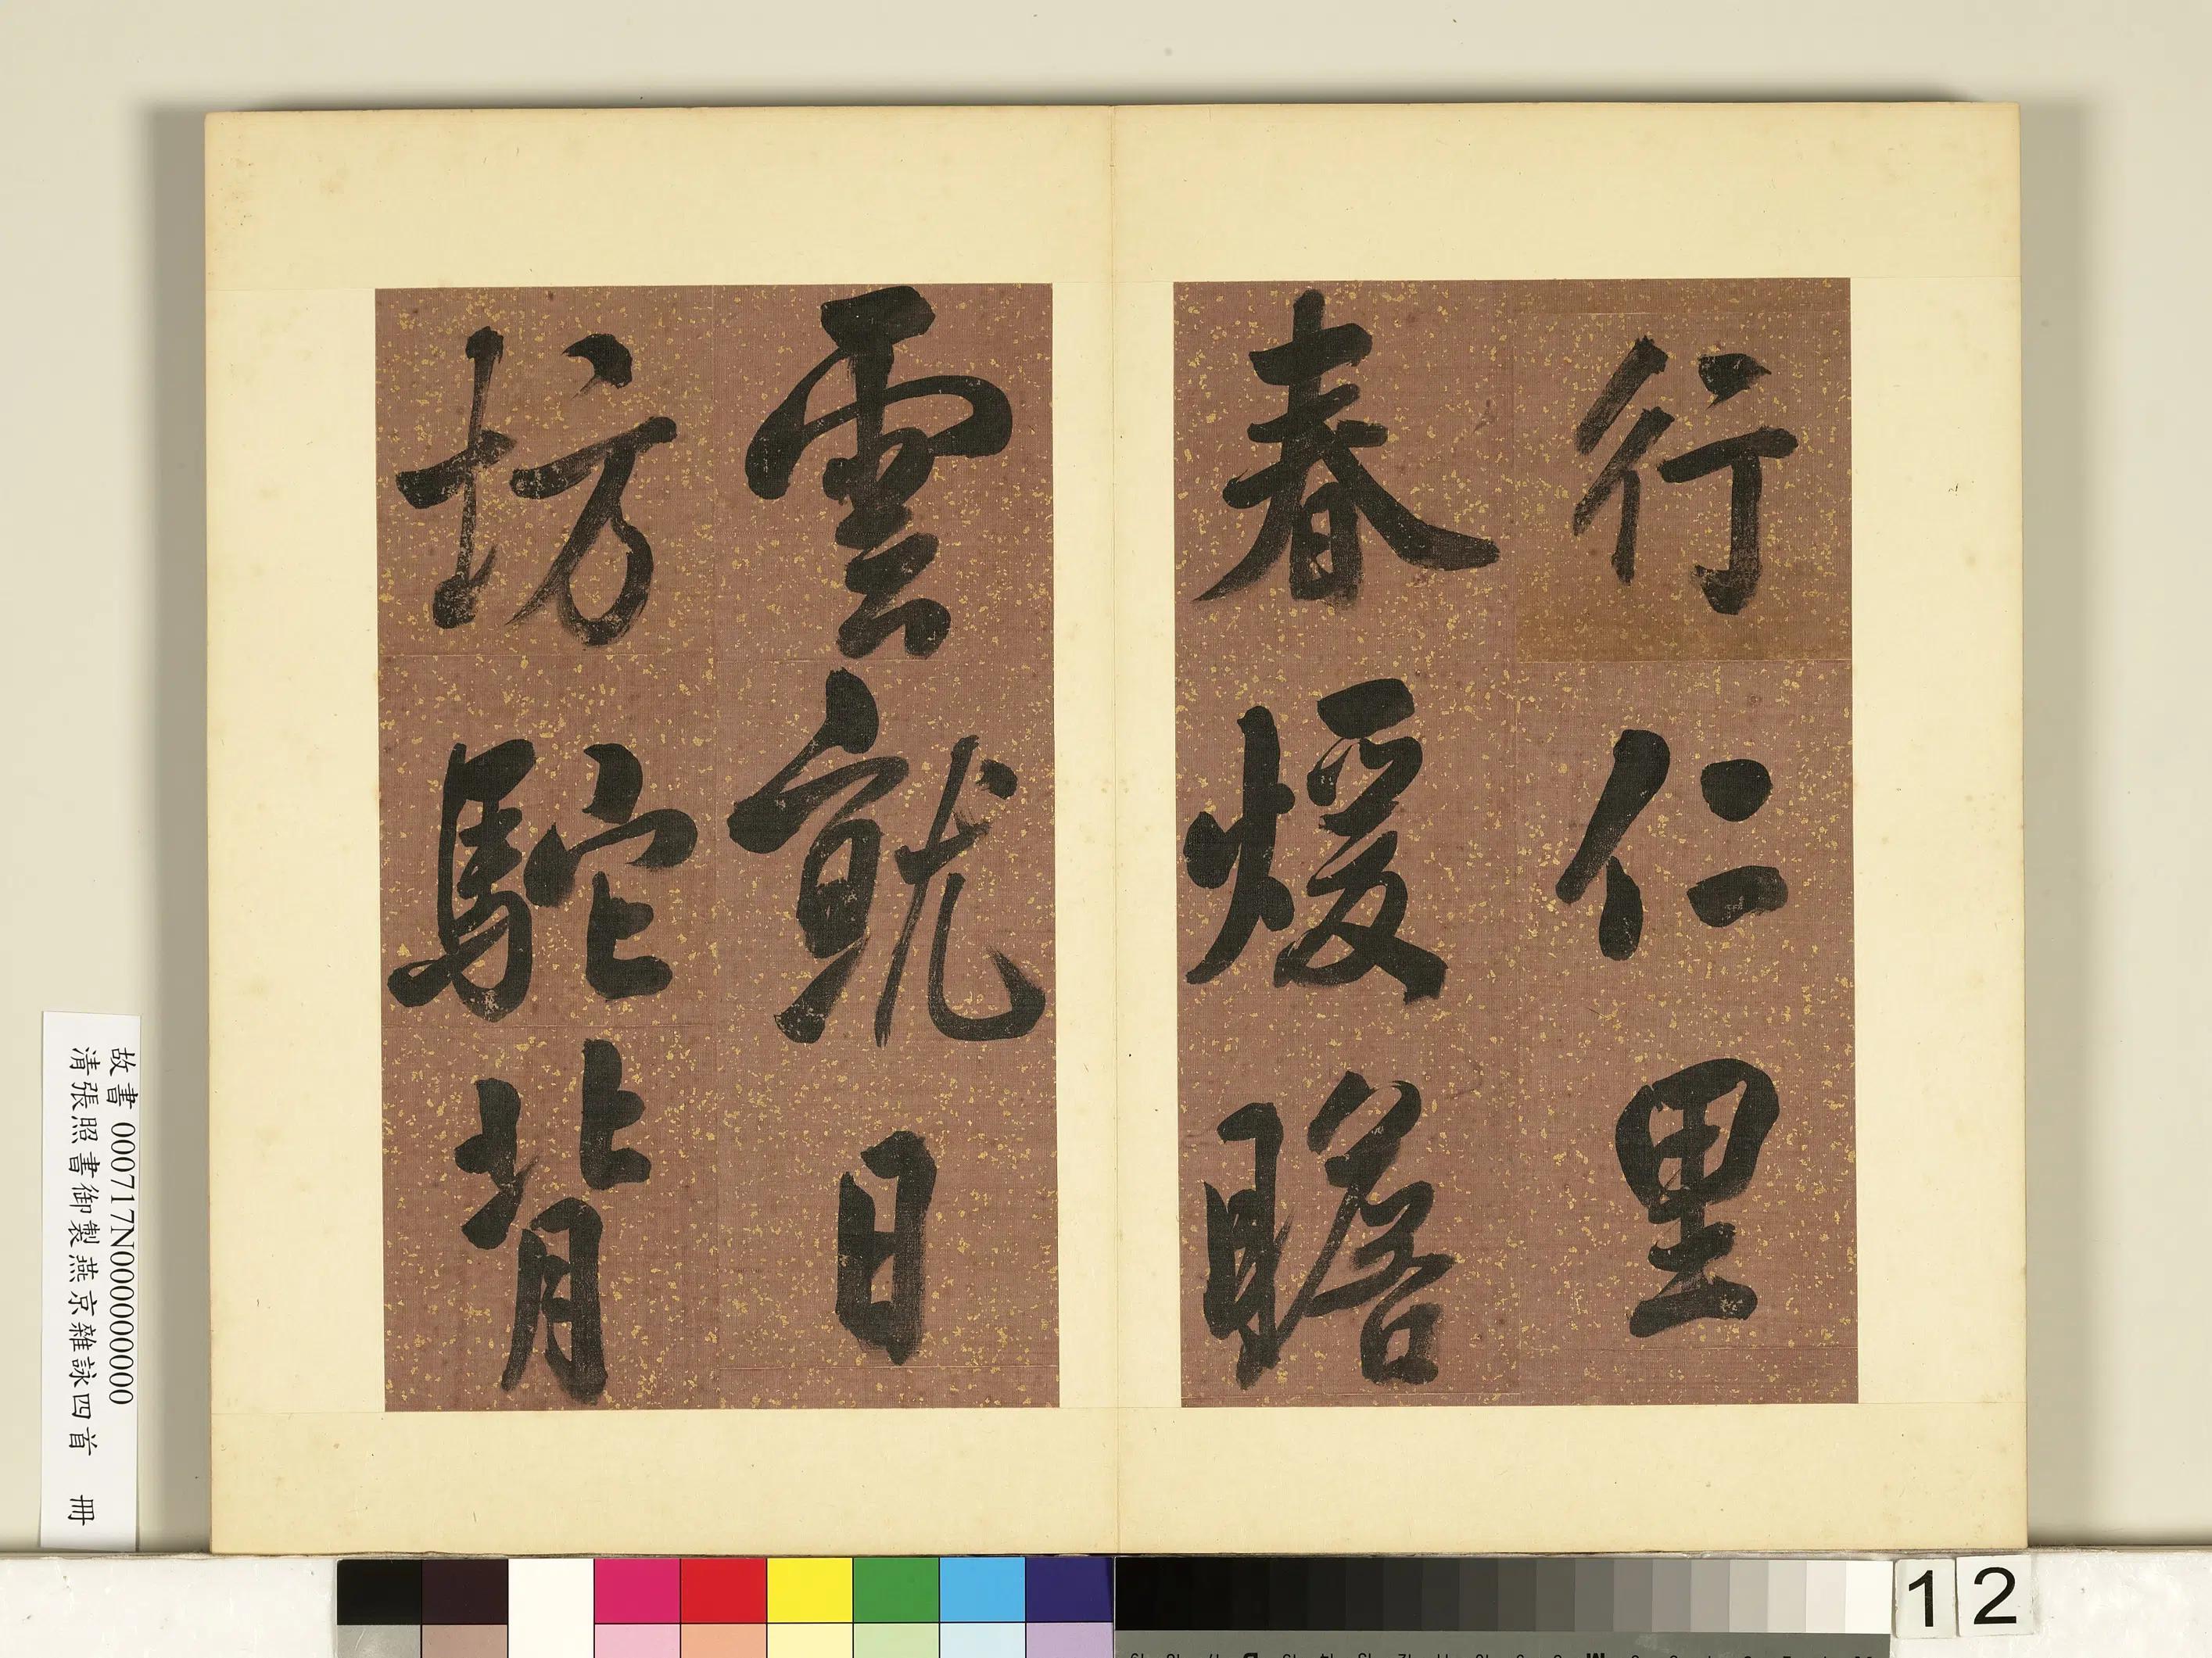 行仁里
春煖瞻
雲就日
坊駝背
故書 000717N000000000
清張照書御製燕京雜詠四首 冊
12